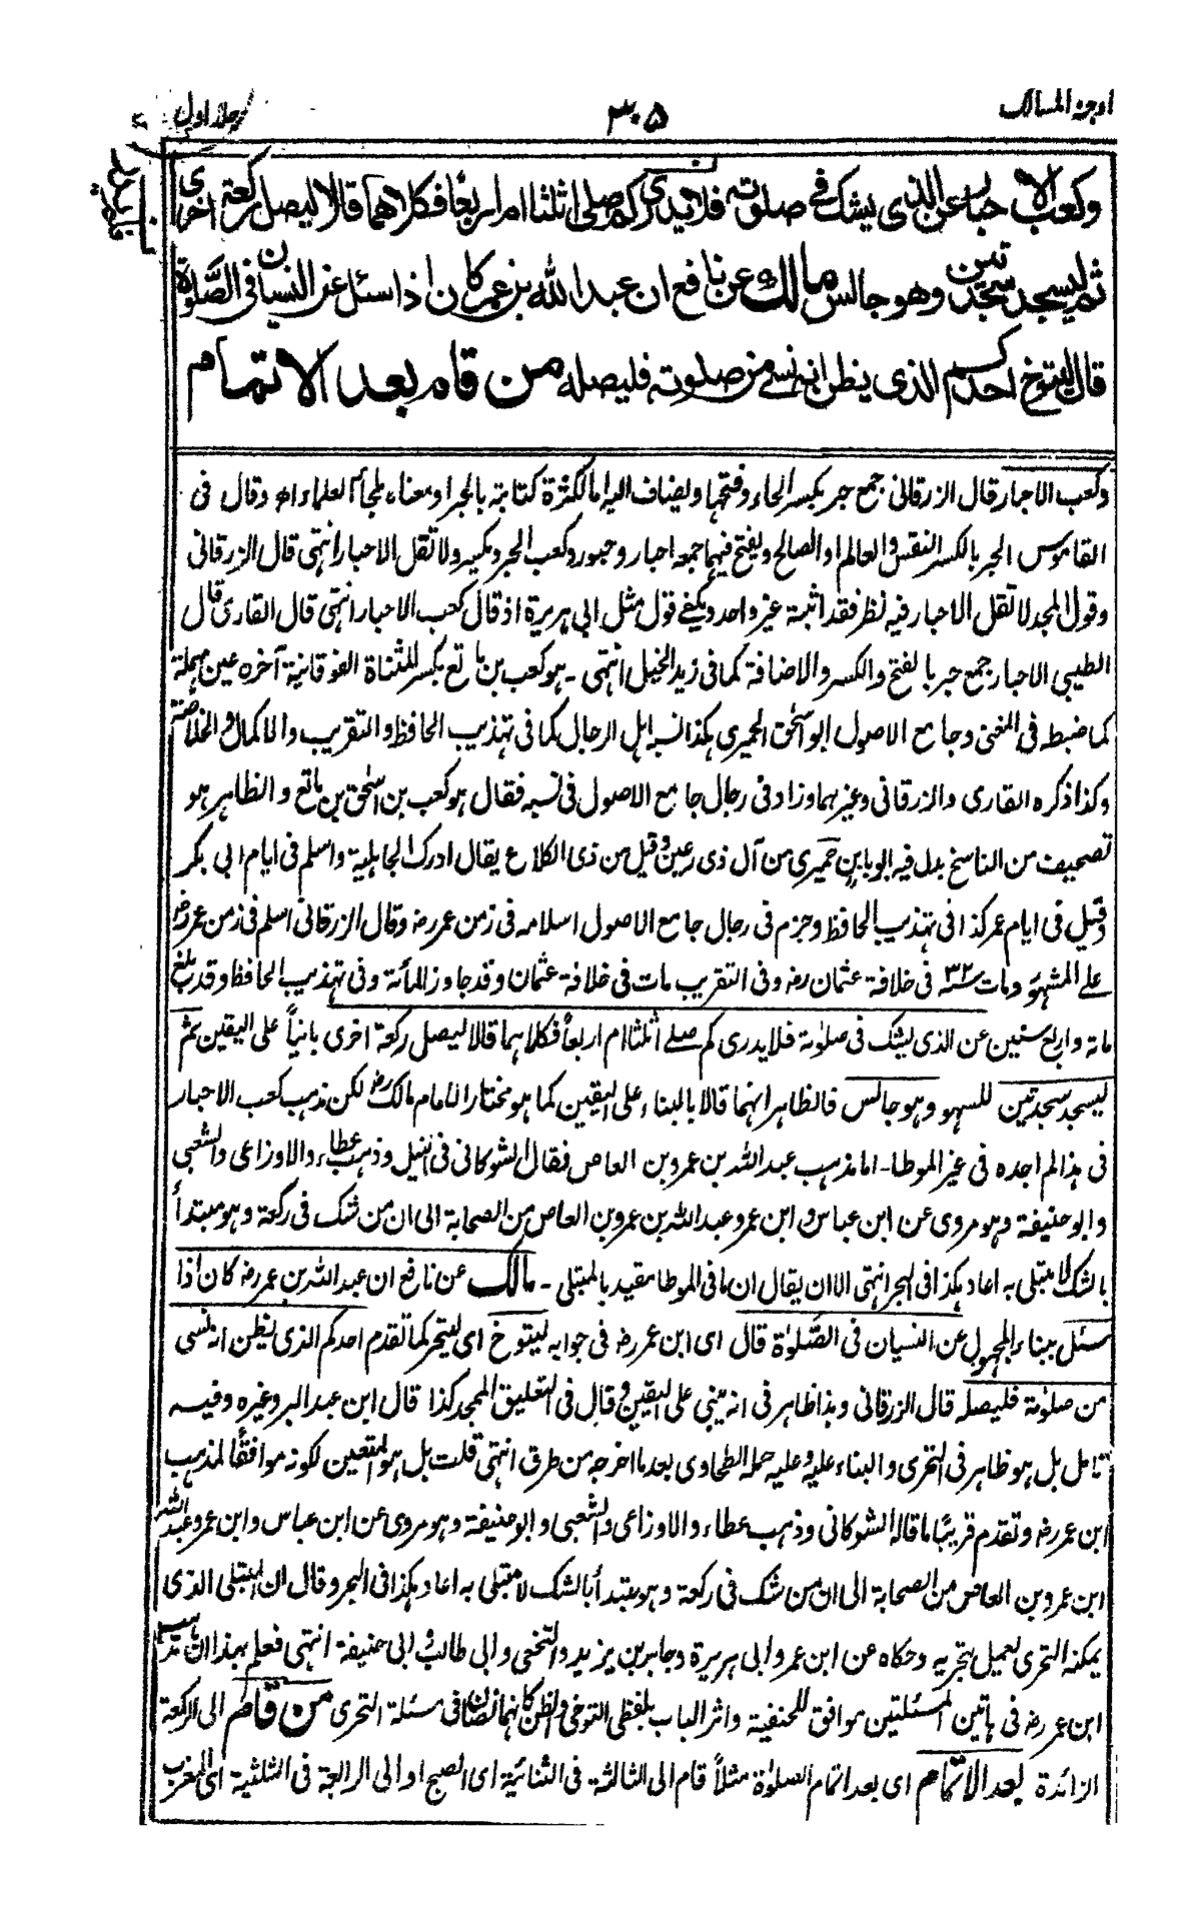 اوجز المسالك
٣٠٥
جلد اول
وكعب الاحبار عن الذى يشك فى صلوته فلا يدرى كم صلى اثلثا ام اربعا فكلاهما قالا ليصل ركعة اخرى
ثم ليسجد سجدتين وهو جالس مالك عن نافع ان عبد الله بن عمر كان اذا سئل عن النسيان فى الصلوة
قال ليتوخ احدكم الذى يظن انه نسى من صلوته فليصله من قام بعد الاتمام
وكعب الاحبار قال الزرقانى جمع حبر بكسر الحاء وفتحها ويضاف اليه اما لكثرة كتابته بالحبر او معناه ملجأ العلماء اه وقال فى
القاموس الحبر بالكسر النقس والعالم او الصالح ويفتح فيهما جمعه احبار وحبور وكعب الحبر ويكسر ولا تقل الاحبار انتهى قال الزرقانى
وقول المجد لا تقل الاحبار فيه نظر فقد اثبته غير واحد ويكفى قول مثل ابى هريرة اذ قال كعب الاحبار انتهى قال القارى قال
الطيبى الاحبار جمع حبر بالفتح والكسر والاضافة كما فى زيد الخيل انتهى - هو كعب بن ماتع بكسر المثناة الفوقانية آخره عين مهملة
كما ضبطه فى المغنى وجامع الاصول ابو اسحق الحميرى هكذا نسبه اهل الرجال كما فى تهذيب الحافظ والتقريب والاكمال والخلاصة
وكذا ذكره القارى والزرقانى وغيرهما وزاد فى رجال جامع الاصول فى نسبه فقال هو كعب بن اسحق بن ماتع والظاهر هو
تصحيف من الناسخ بدل فيه ابو بابن حميرى من آل ذى رعين وقيل من ذى الكلاع يقال ادرك الجاهلية واسلم فى ايام ابى بكر
وقيل فى ايام عمر كذا فى تهذيب الحافظ وجزم فى رجال جامع الاصول اسلامه فى زمن عمر رض وقال الزرقانى اسلم فى زمن عمر رض
على المشهور ومات ٣٢ه فى خلافة عثمان رض وفى التقريب مات فى خلافة عثمان وقد جاوز المأئة وفى تهذيب الحافظ وقد بلغ
مائة واربع سنين عن الذى يشك فى صلوته فلا يدرى كم صلى اثلثا ام اربعا فكلاهما قالا ليصل ركعة اخرى بانيا على اليقين ثم
ليسجد سجدتين للسهو وهو جالس فالظاهر انهما قالا بالبناء على اليقين كما هو مختار الامام مالك رض لكن مذهب كعب الاحبار
فى هذا لم اجده فى غير الموطا - اما مذهب عبد الله بن عمرو بن العاص فقال الشوكانى فى النيل وذهب عطاء والاوزاعى والشعبى
وابو حنيفة وهو مروى عن ابن عباس و ابن عمر وعبد الله بن عمرو بن العاص من الصحابة الى ان من شك فى ركعة وهو مبتدأ
بالشك لا مبتلى به اعاد هكذا فى البحر انتهى الا ان يقال ان ما فى الموطا مقيد بالمبتلى - مالك عن نافع ان عبد الله بن عمر رض كان اذا
سئل ببناء المجهول عن النسيان فى الصلوة قال اى ابن عمر رض فى جوابه ليتوخ اى ليتحر كما تقدم احدكم الذى يظن انه نسى
من صلوته فليصله قال الزرقانى وهذا ظاهر فى انه يبنى على اليقين وقال فى التعليق الممجد كذا قال ابن عبد البر وغيره وفيه
تامل بل هو ظاهر فى التحرى والبناء عليه وعليه حمله الطحاوى بعد ما اخرجه من طرق انتهى قلت بل هو المتعين لكونه موافقا لمذهب
ابن عمر رض وتقدم قريبا ما قاله الشوكانى وذهب عطاء والاوزاعى والشعبى وابو حنيفة وهو مروى عن ابن عباس وابن عمر وعبد الله
ابن عمرو بن العاص من الصحابة الى ان من شك فى ركعة وهو مبتدأ بالشك لا مبتلى به اعاد هكذا فى البحر وقال ان المبتلى الذى
يمكنه التحرى يعمل بتحريه وحكاه عن ابن عمر وابى هريرة وجابر بن يزيد والنخعى وابى طالب وابى حنيفة انتهى فعلم بهذا ان مذهب
ابن عمر رض فى هاتين المسئلتين موافق للحنفية واثر الباب بلفظى التوخى والظن كانهما نصان فى مسئلة التحرى من قام الى الركعة
الزائدة بعد الاتمام اى بعد اتمام الصلوة مثلا قام الى الثالثة فى الثنائية اى الصبح او الى الرابعة فى الثلثية اى المغرب